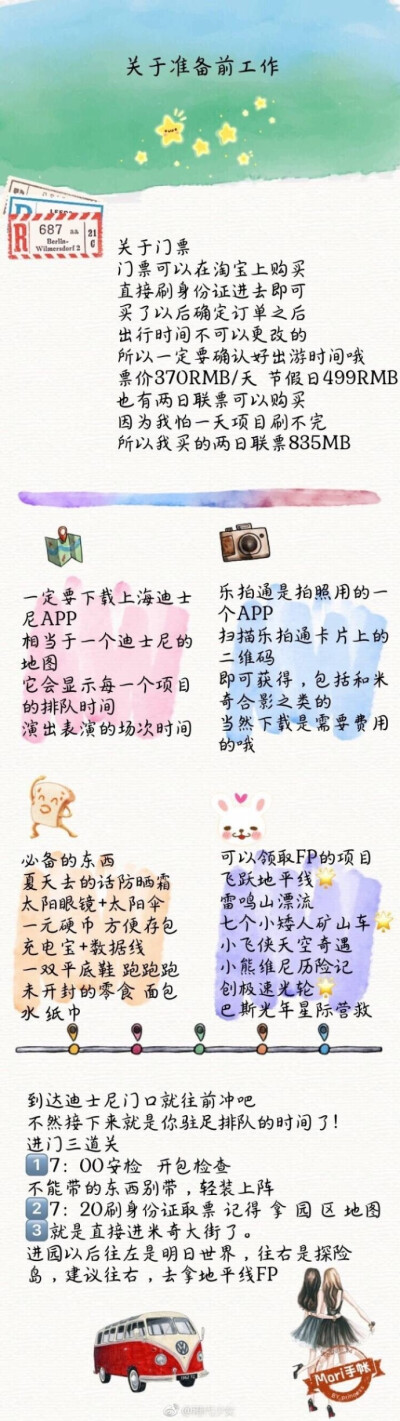 关于准备前工作
R
687 aa
21
C
Berlin-
Wilmersdorf 2
关于门票
门票可以在淘宝上购买
直接刷身份证进去即可
买了以后确定订单之后
出行时间不可以更改的
所以一定要确认好出游时间哦
票价370RMB/天 节假日499RMB
也有两日联票可以购买
因为我怕一天项目刷不完
所以我买的两日联票835MB
一定要下载上海迪士
尼APP
相当于一个迪士尼的
地图
它会显示每一个项目
的排队时间
演出表演的场次时间
乐拍通是拍照用的一
个APP
扫描乐拍通卡片上的
二维码
即可获得,包括和米
奇合影之类的
当然下载是需要费用
的哦
必备的东西
夏天去的话防晒霜
太阳眼镜+太阳伞
一元硬币 方便存包
充电宝+数据线
一双平底鞋 跑跑跑
未开封的零食 面包
水 纸巾
可以领取FP的项目
飞跃地平线🌟
雷鸣山漂流
七个小矮人矿山车🌟
小飞侠天空奇遇
小熊维尼历险记
创极速光轮🌟
巴斯光年星际营救
到达迪士尼门口就往前冲吧
不然接下来就是你驻足排队的时间了!
进门三道关
1️⃣7:00安检 开包检查
不能带的东西别带,轻装上阵
2️⃣7:20刷身份证取票 记得 拿 园 区 地图
3️⃣就是直接进米奇大街了。
进园以后往左是明日世界,往右是探险
岛,建议往右,去拿地平线FP
Mori手帐